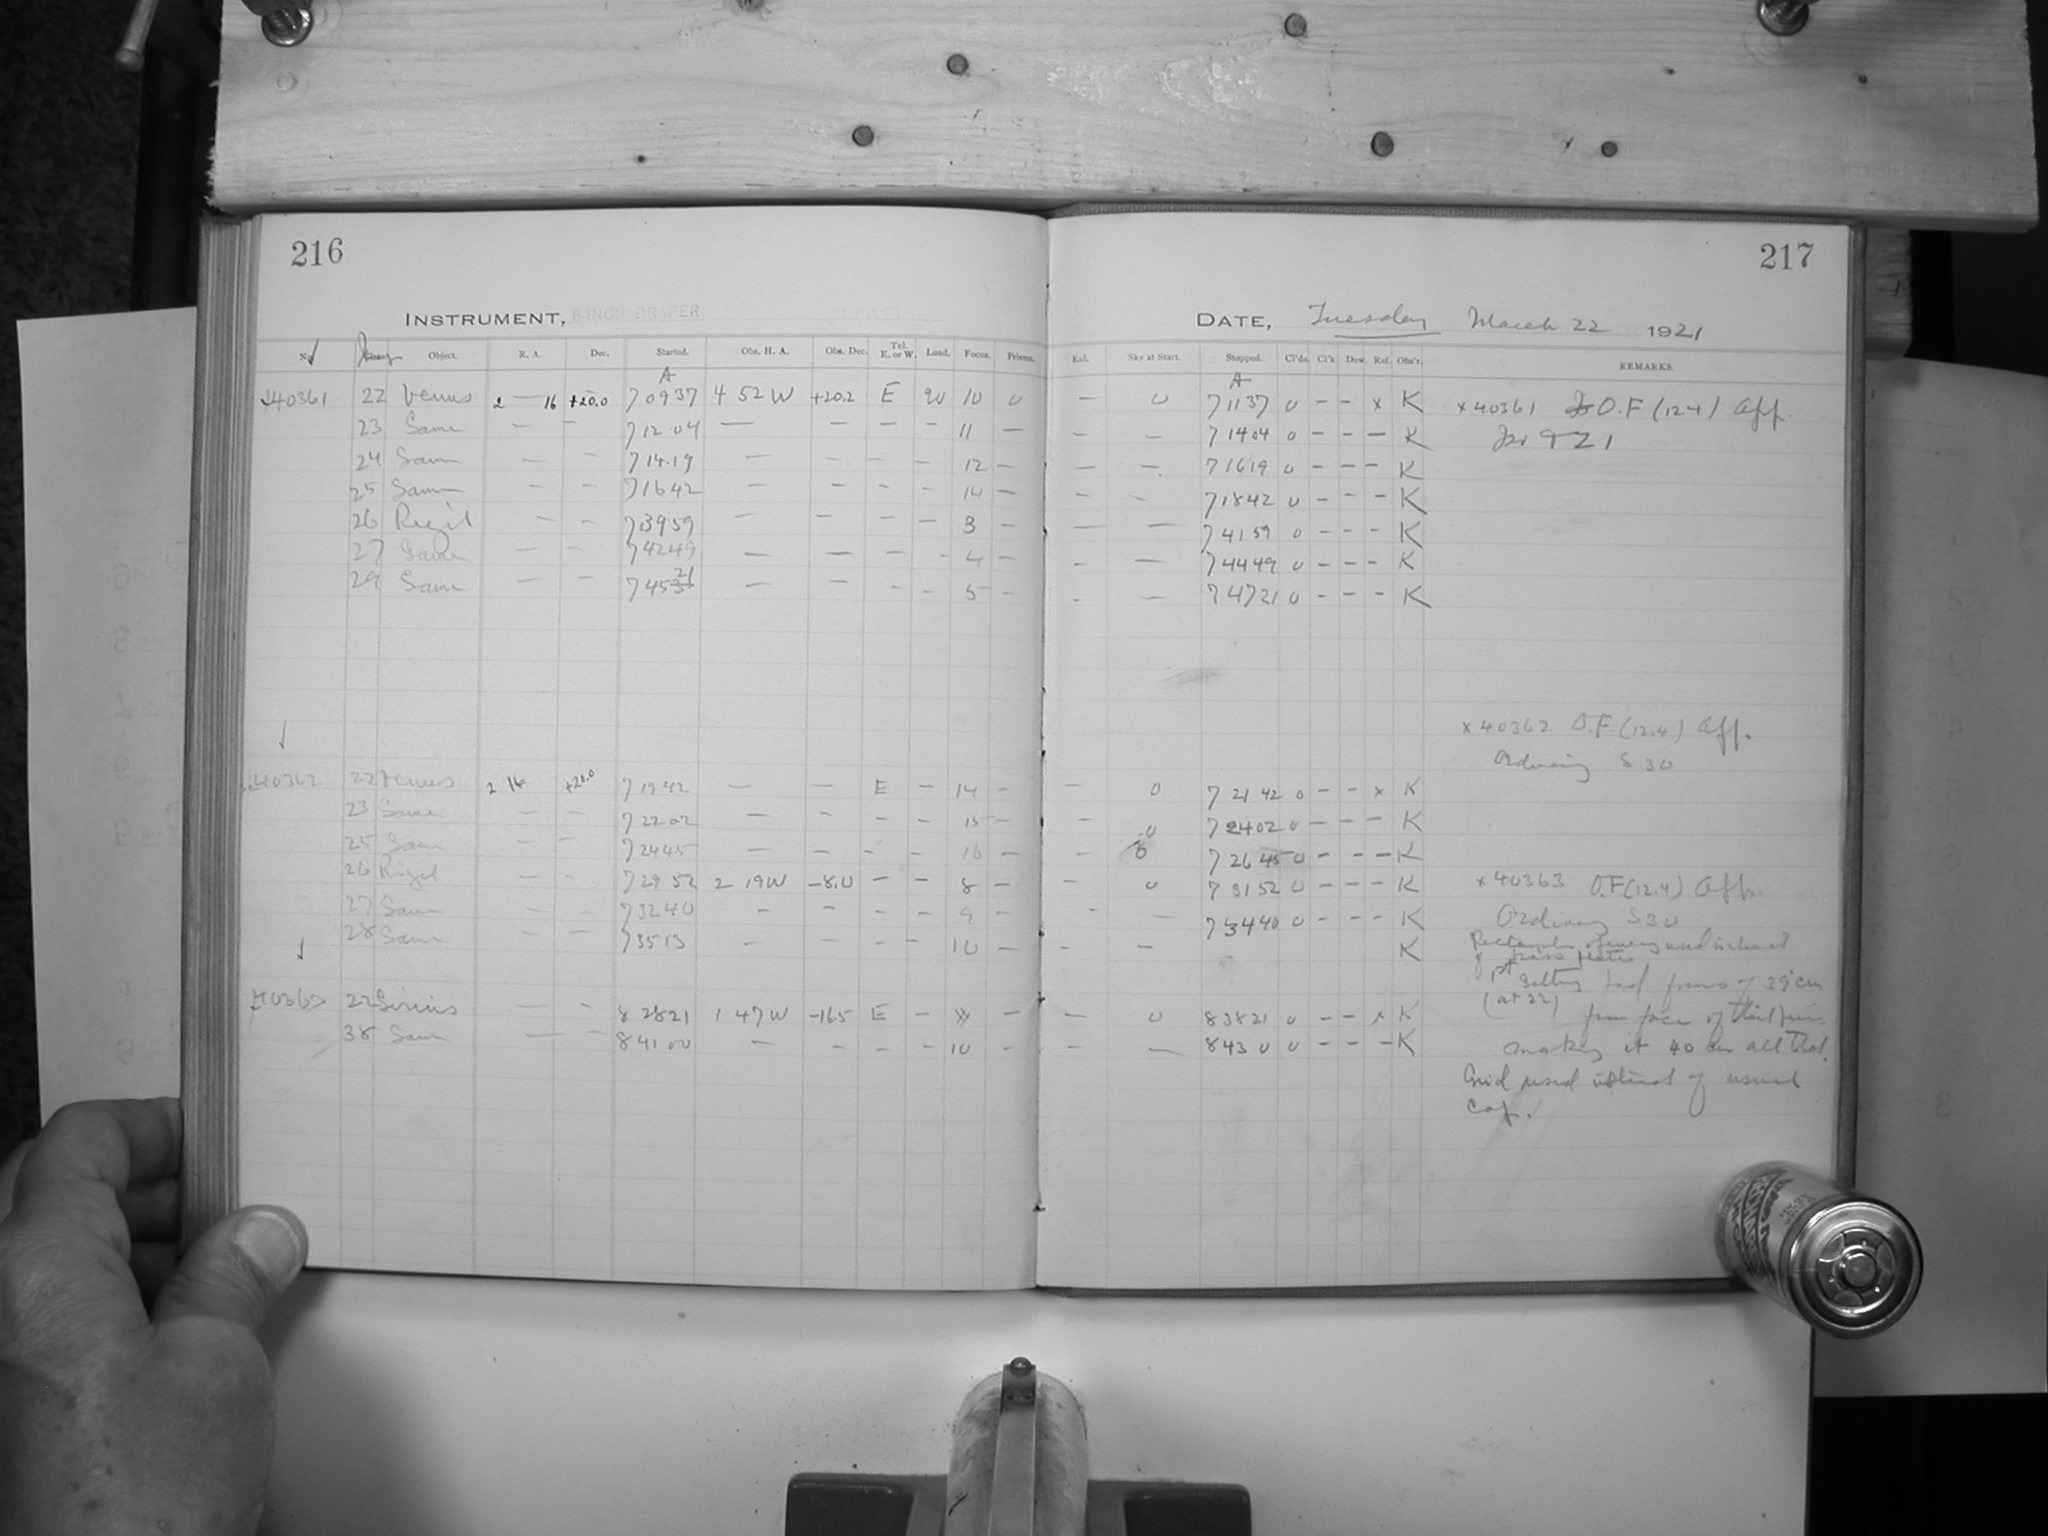 216
217
INSTRUMENT, 8-INCH DRAPER
DATE, Tuesday March 22 1921
No. Object. R. A. Dec. Started. Obs. H. A. Obs. Dec. Tel. E. or W. Load. Focus. Prisms. Exl. Sky at Start. Stopped. Cl'ds. Cl'k Dew. Ref. Obs'r. REMARKS.
A A
40361 22 Venus 2 — 16 +20.0 7 09 37 4 52 W +20.2 E 20 10 0 — 0 7 11 37 0 — — x K x 40361 O.F (12.4) Aff.
23 Same — — 7 12 04 — — — — 11 — — — 7 14 04 0 — — — K
24 Same — — 7 14 19 — — — — 12 — — — 7 16 19 0 — — — K
25 Same — — 7 16 42 — — — — 14 — — — 7 18 42 0 — — — K
26 Rigel — — 7 39 59 — — — — 3 — — — 7 41 59 0 — — — K
27 Same — — 7 42 49 — — — — 4 — — — 7 44 49 0 — — — K
29 Same — — 7 45 21 — — — — 5 — — — 7 47 21 0 — — — K
x 40362 O.F. (12.4) Aff.
Ordinary S 30
40362 22 Venus 2 16 +20.0 7 19 42 — — E — 14 — — 0 7 21 42 0 — — x K
23 Same — — 7 22 02 — — — — 15 — — 0 7 24 02 0 — — — K
25 Same — — 7 24 45 — — — — 16 — — 0 7 26 45 0 — — — K
26 Rigel — — 7 29 52 2 19 W —8.0 — — 8 — — 0 7 31 52 0 — — — K x 40363 O.F. (12.4) Aff.
27 Same — — 7 32 40 — — — — 9 — — — 7 34 40 0 — — — K Ordinary S 30
28 Same — — 7 35 13 — — — — 10 — — — K
used instead
1st Setting had focus of 39 cm
(at 22) from face of
40363 22 Sirius — — 8 28 21 1 47 W —16.5 E — — — 0 8 38 21 0 — — x K
38 Same — — 8 41 00 — — — — 10 — — — 8 43 0 0 — — — K making it 40 cm all
Grid used instead of usual
cap.